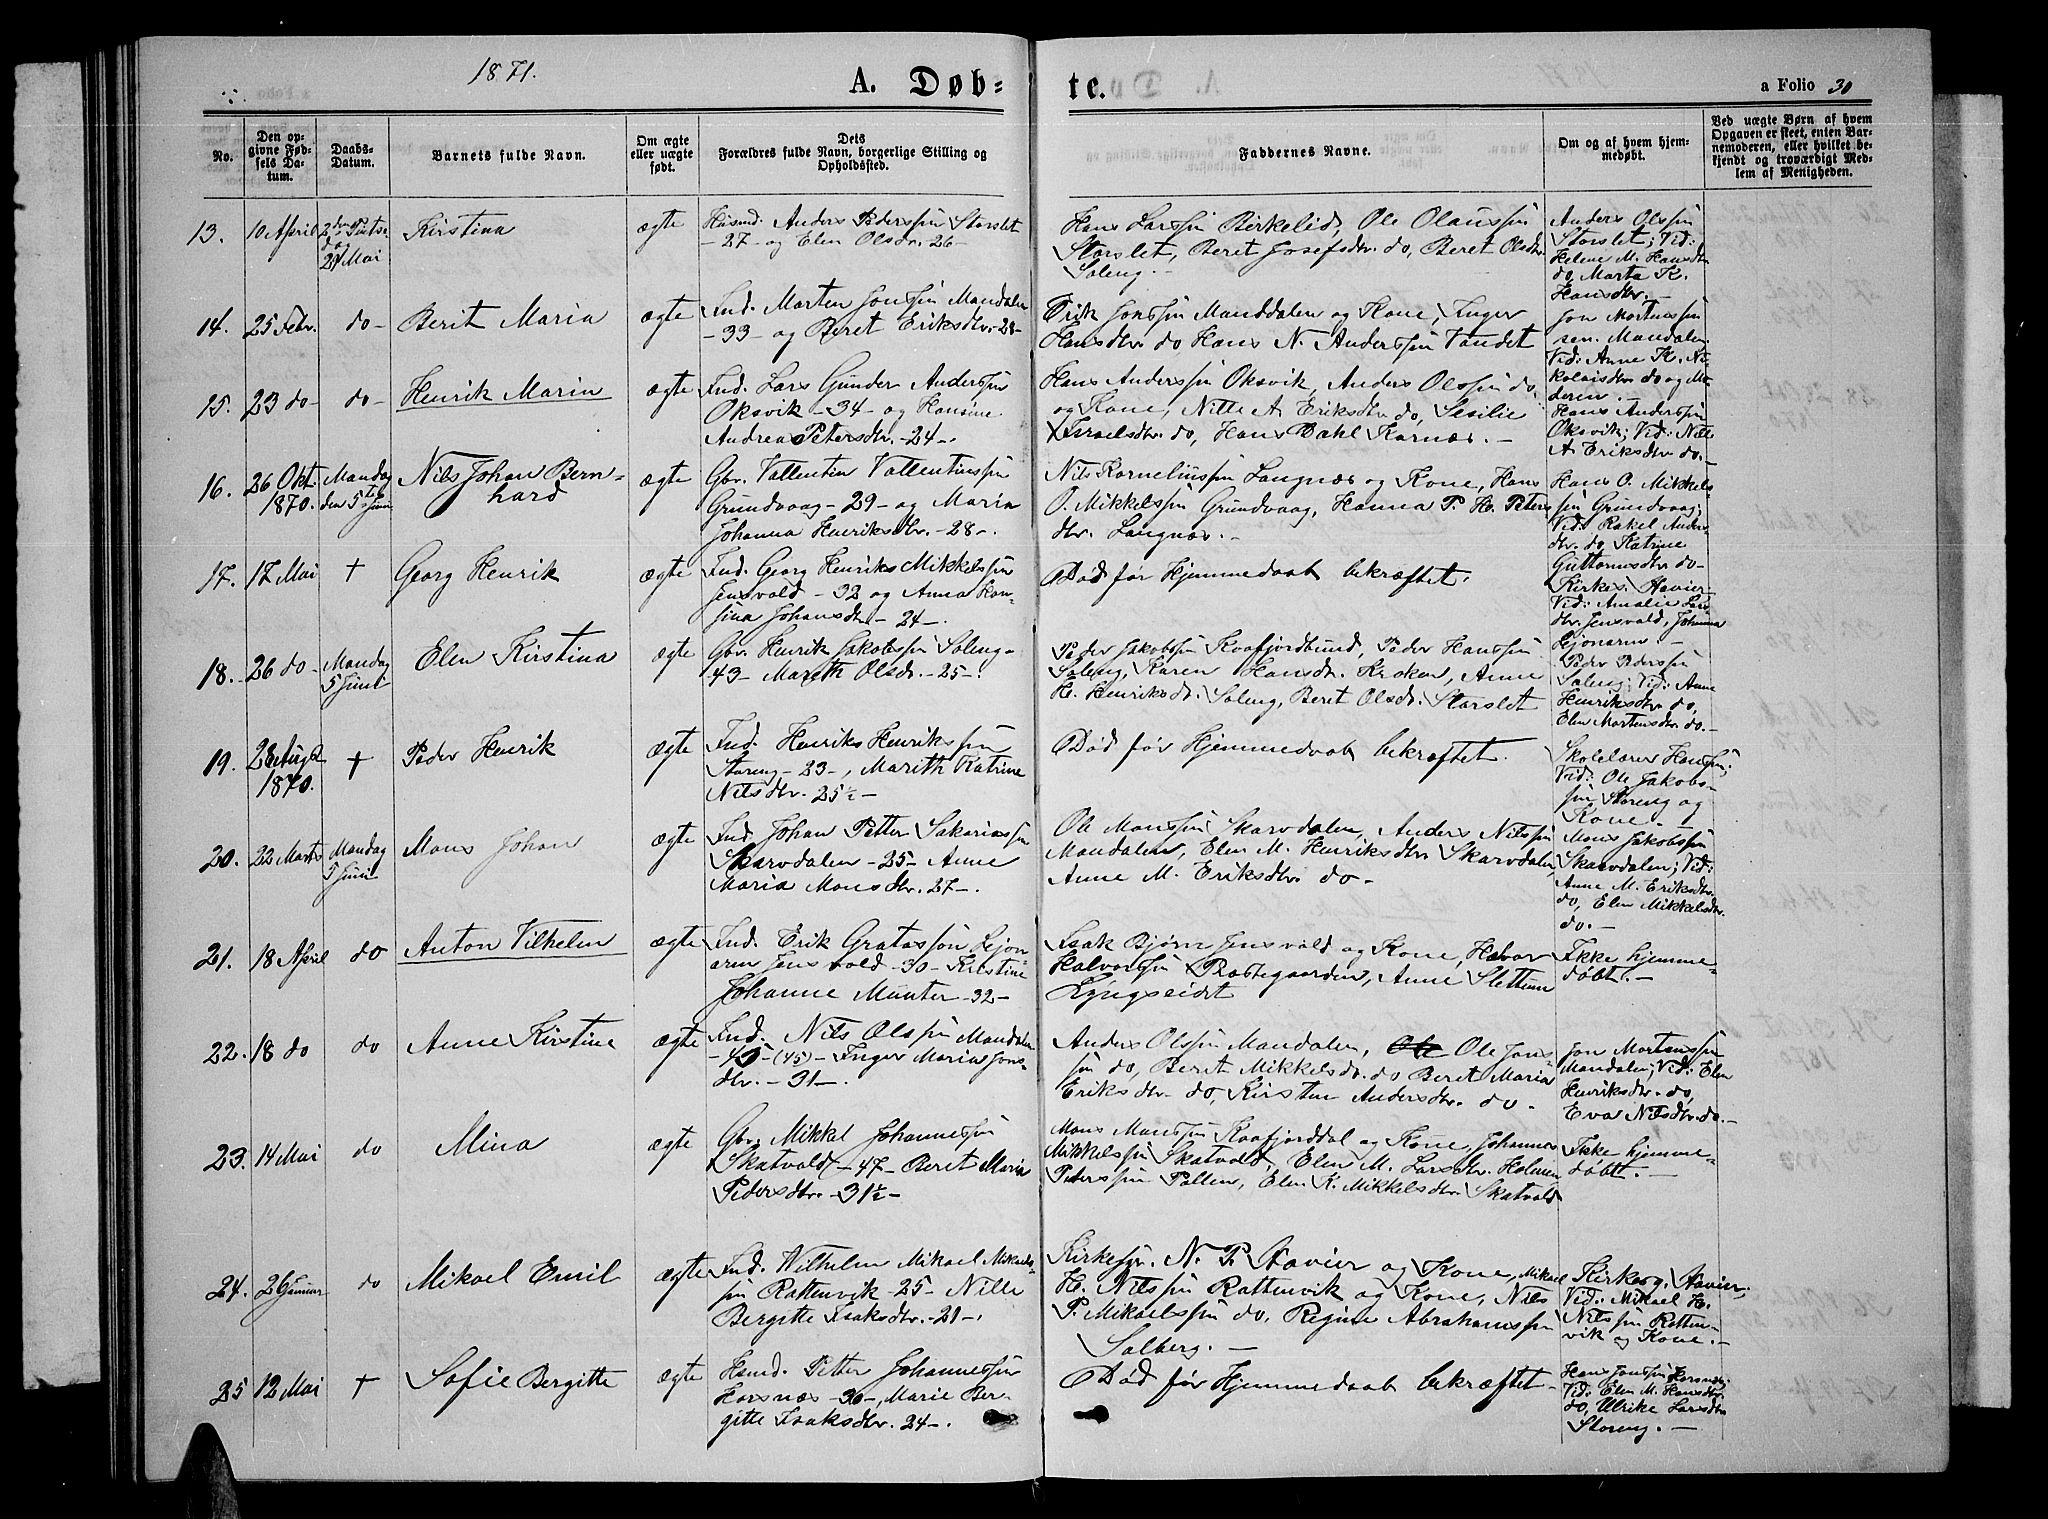 1871.
A. Døb=
te.
a Folio 30
No.
Den op=
givne Fød=
sels Da=
tum.
Daabs=
Datum.
Barnets fulde Navn.
Om ægte
eller uægte
født.
Dets
Forældres fulde Navn, borgerlige Stilling og
Opholdssted.
Faddernes Navne.
Om og af hvem hjem=
medøbt.
Ved uægte Børn af hvem
Opgaven er skeet, enten Bar=
nemoderen, eller hvilket be=
kjendt og troværdigt Med=
lem af Menigheden.
13.
10 April
2den Pintse
dag
29 Mai
Kirstina
ægte
Husmd. Anders Pederssøn Storslet
-27- og Elen Olsdr. 26-
Hans Larssøn Birkelid, Ole Olaussøn
Storslet, Beret Josefsdtr. do, Beret Olsdtr.
Soleng.-
Anders Olssøn
Storslet; Vid:
Helene M. Hansdtr.
do, Marta K.
Hansdtr.-
14.
25 Febr.
do-
Berit Maria
ægte
Ind. Morten Jonssøn Mandalen
-33- og Beret Eriksdtr. -28-
Erik Jonssøn Manddalen og Kone, Inger
Hansdtr. do Hans N. Anderssøn Vandet
Jon Mortenssøn
sen. Mandalen.
Vid: Anne K. Ni-
kolaisdtr do og Mo-
deren.-
15.
23 do-
do-
Henrik Marin
ægte
Ind. Lars Gunder Anderssøn
Oksvik -34- og Hansine
Andrea Petersdtr. -24-.
Hans Anderssøn Oksvik, Anders Olssøn do
og Kone, Nille A. Eriksdtr do, Sesilie
Israelsdtr. do, Hans Dahl Karnæs.-
Hans Anderssøn
Oksvik; Vid: Nille
A Eriksdtr do.-
16.
26 Okt.
1870.
Mandag
den 5te Juni
Nils Johan Bern-
hard
ægte
Gbr. Vallentin Vallentinssøn
Grundvaag -29- og Maria
Johanna Henriksdtr. -28-.
Nils Korneliussøn Langnæs og Kone, Hans
O. Mikkelssøn Grundvaag, Hanna P. H. Peters
dtr. Langnæs.-
Hans O. Mikkels-
søn Grundvaag;
Vid: Rakel Anders-
dtr. do, Katrine
Guttormsdtr do-
17.
17 Mai
+
Georg Henrik
ægte
Ind. Georg Henriks Mikkelssøn
Jensvold -32 og Anna Han-
sina Johansdtr- 24-.
Død før Hjemmedaab bekræftet.
Kirkes. Havier
Vid: Amalie Lars-
dtr. Jensvold, Johanna
Lejonarm-
18.
26 do-
Mandag
5 Juni
Elen Kirstina
ægte
Gbr. Henrik Jakobssøn Soleng-
43- Marith Olsdr. -25-.
Peder Jakobssøn Kaafjordbund, Peder Hanssøn
Soleng, Karen Hansdtr. Kroken, Anne
H. Henriksdr. Soleng, Beret Olsdr. Storslet
Peder Pederssøn
Soleng; Vid: Anne
Henriksdtr. do,
Elen Mortensdtr. do.-
19.
1870.
+
Peder Henrik
ægte
Ind. Henriks Henrikssøn
Storeng -23-, Marith Katrine
Nilsdtr. 25½-
Død før Hjemmedaab bekræftet.
Skolelærer Hanssøn;
Vid: Ole Jakobs-
søn Storeng og
Kone.-
20.
22 Marts
Mandag
5 Juni
Mons Johan
ægte
Ind. Johan Petter Sakariassøn
Skarvdalen -25- Anne
Maria Monsdtr. 27-.
Ole Monssøn Skarvdalen, Anders Nilssøn
Mandalen, Elen M. Henriksdtr. Skarvdalen,
Anne M. Eriksdtr. do-
Mons Jakobssøn
Skarvdalen; Vid:
Anne M. Eriksdtr.
do, Elen Mikkelsdtr.
do.-
21.
18 April
do
Anton Vilhelm
ægte
Ind. Erik Gratassøn Lejon-
arm Jensvold -30- Kirstine
Johanne Munter -32-
Isak Bjørn Jensvold og Kone, Havor
Halvorssøn Præstegaarden, Anne Slettum
Lyngseidet
Ikke hjemme-
døbt.-
22.
18 do
do
Anne Kirstine
ægte
Ind. Nils Olssøn Mandalen
-45 (45)- Inger Maria Jons-
dtr. -31-.
Anders Olssøn Mandalen, Ole Ole Jons-
søn do, Beret Mikkelsdr. do Beret Maria
Eriksdtr. do, Kirsten Andersdtr. do.
Jon Mortenssøn
Mandalen; Vid: Elen
Henriksdtr. do,
Eva Nilsdtr. do.-
23.
14 Mai
do
Mina
ægte
Gbr. Mikkel Johannessøn
Skatvold -47- Beret Maria
Pedersdtr. -31½-
Mons Monssøn Kaafjorddal og Kone, Johannes
Mikkelssøn Skatvold, Elen M. Larsdtr. Holmen
Peterssøn Pollen, Elen K. Mikkelsdtr. Skatvold
Ikke hjemme-
døbt.-
24.
26 Januar
do
Mikael Emil
ægte
Ind. Wilhelm Mikael Mikaels-
søn Rottenvik -25- Nille
Bergitte Isaksdtr. -21-.
Kirkesgr. N. P. Havier og Kone, Mikael
H. Nilssøn Rottenvik og Kone, Nils
P. Mikaelssøn do, Regine Abrahamssøn
Solberg.-
Kirkesg. Havier,
Vid: Mikael H.
Nilssøn Rotten-
vik og Kone.-
25
12 Mai
+
Sofie Bergitte
ægte
Hsmd. Petter Johannessøn
Horsnæs -30-, Marie Ber-
gitte Isaksdtr. 24-.
Død før Hjemmedaab bekræftet-
Hans Jonssøn Horsnæs;
Vid: Elen M. Hansdtr.
do, Ulrike Larsdtr
Storeng.-